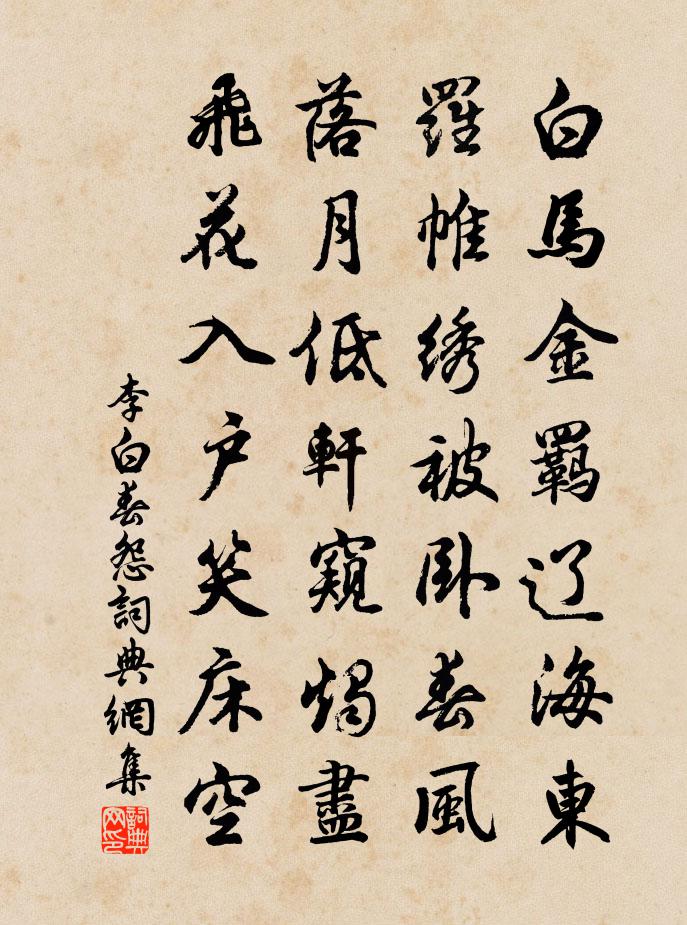 白馬金羈辽海東
羅帷绣被卧春風
落月低軒窺燭盡
飛花入户笑床空
李白春怨詞典網集
詞典网印